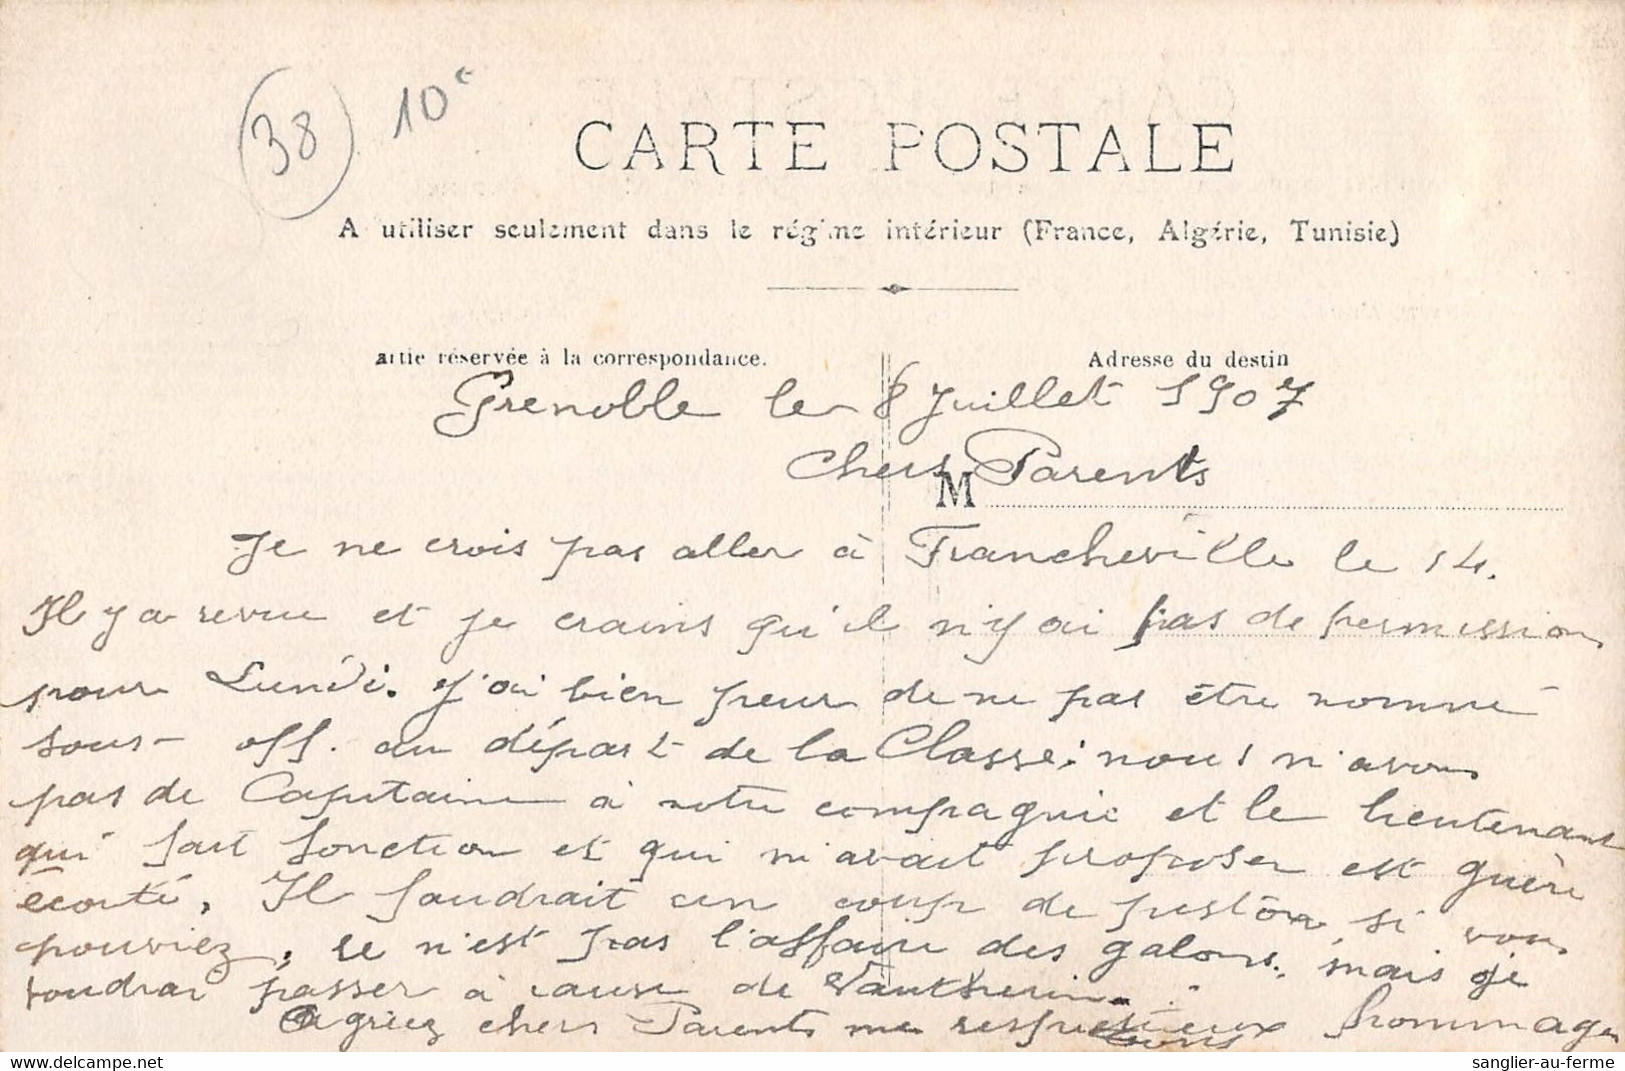 38
10 €
CARTE POSTALE
A utiliser seulement dans le régime intérieur (France, Algérie, Tunisie)
artie réservée à la correspondance.
Adresse du destin
Grenoble le 8 Juillet 1907
Chers Parents
M
Je ne crois pas aller à Francheville le 14.
Il y a revue et je crains qu'il n'y ai pas de permission
pour Lundi. J'ai bien peur de ne pas être nommé
sous-off. au départ de la Classe; nous n'avons
pas de Capitaine à notre compagnie et le lieutenant
qui fait fonction et qui m'avait proposer est guère
écouté, Il faudrait un coup de piston, si vous
pouviez, se n'est pas l'affaire des galons, mais je
voudrai passer à cause de Vautherin.
Agréez chers Parents mes respectueux hommages
sanglier-au-ferme
www.delcampe.net